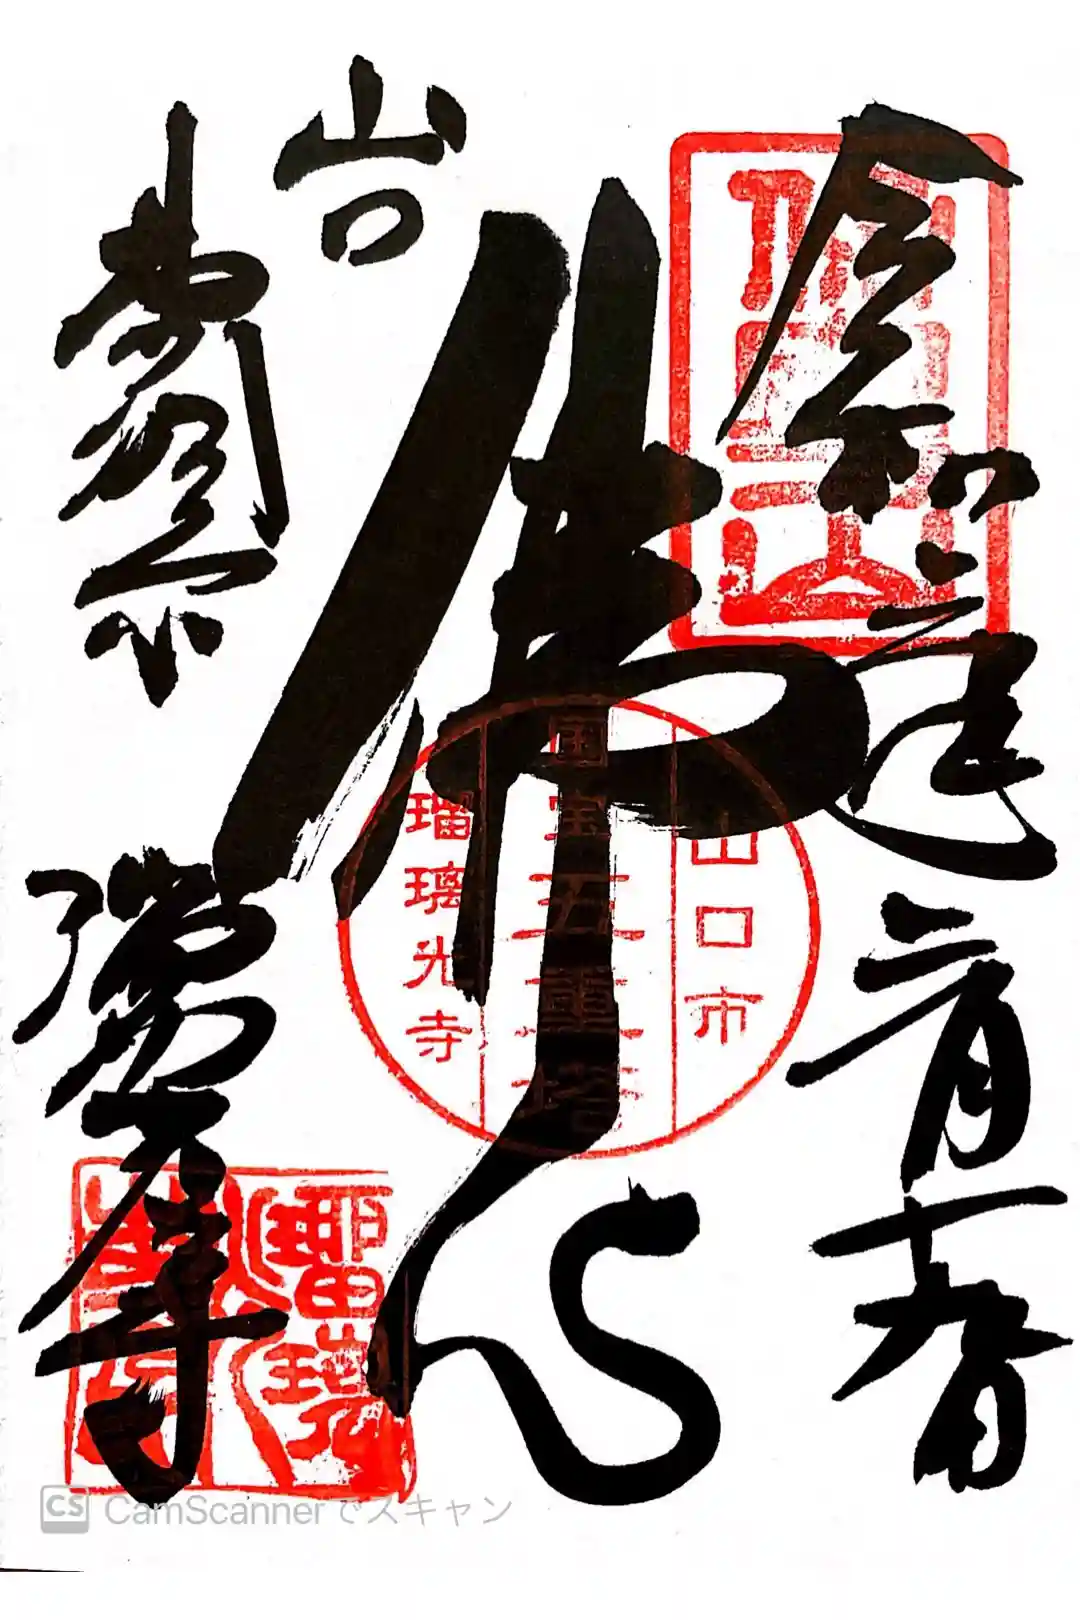 令和
佛心
山口
曹洞宗
瑠璃光寺
保寧山
山口市
国宝五重塔
瑠璃光寺
瑠璃光寺
CS CamScannerでスキャン